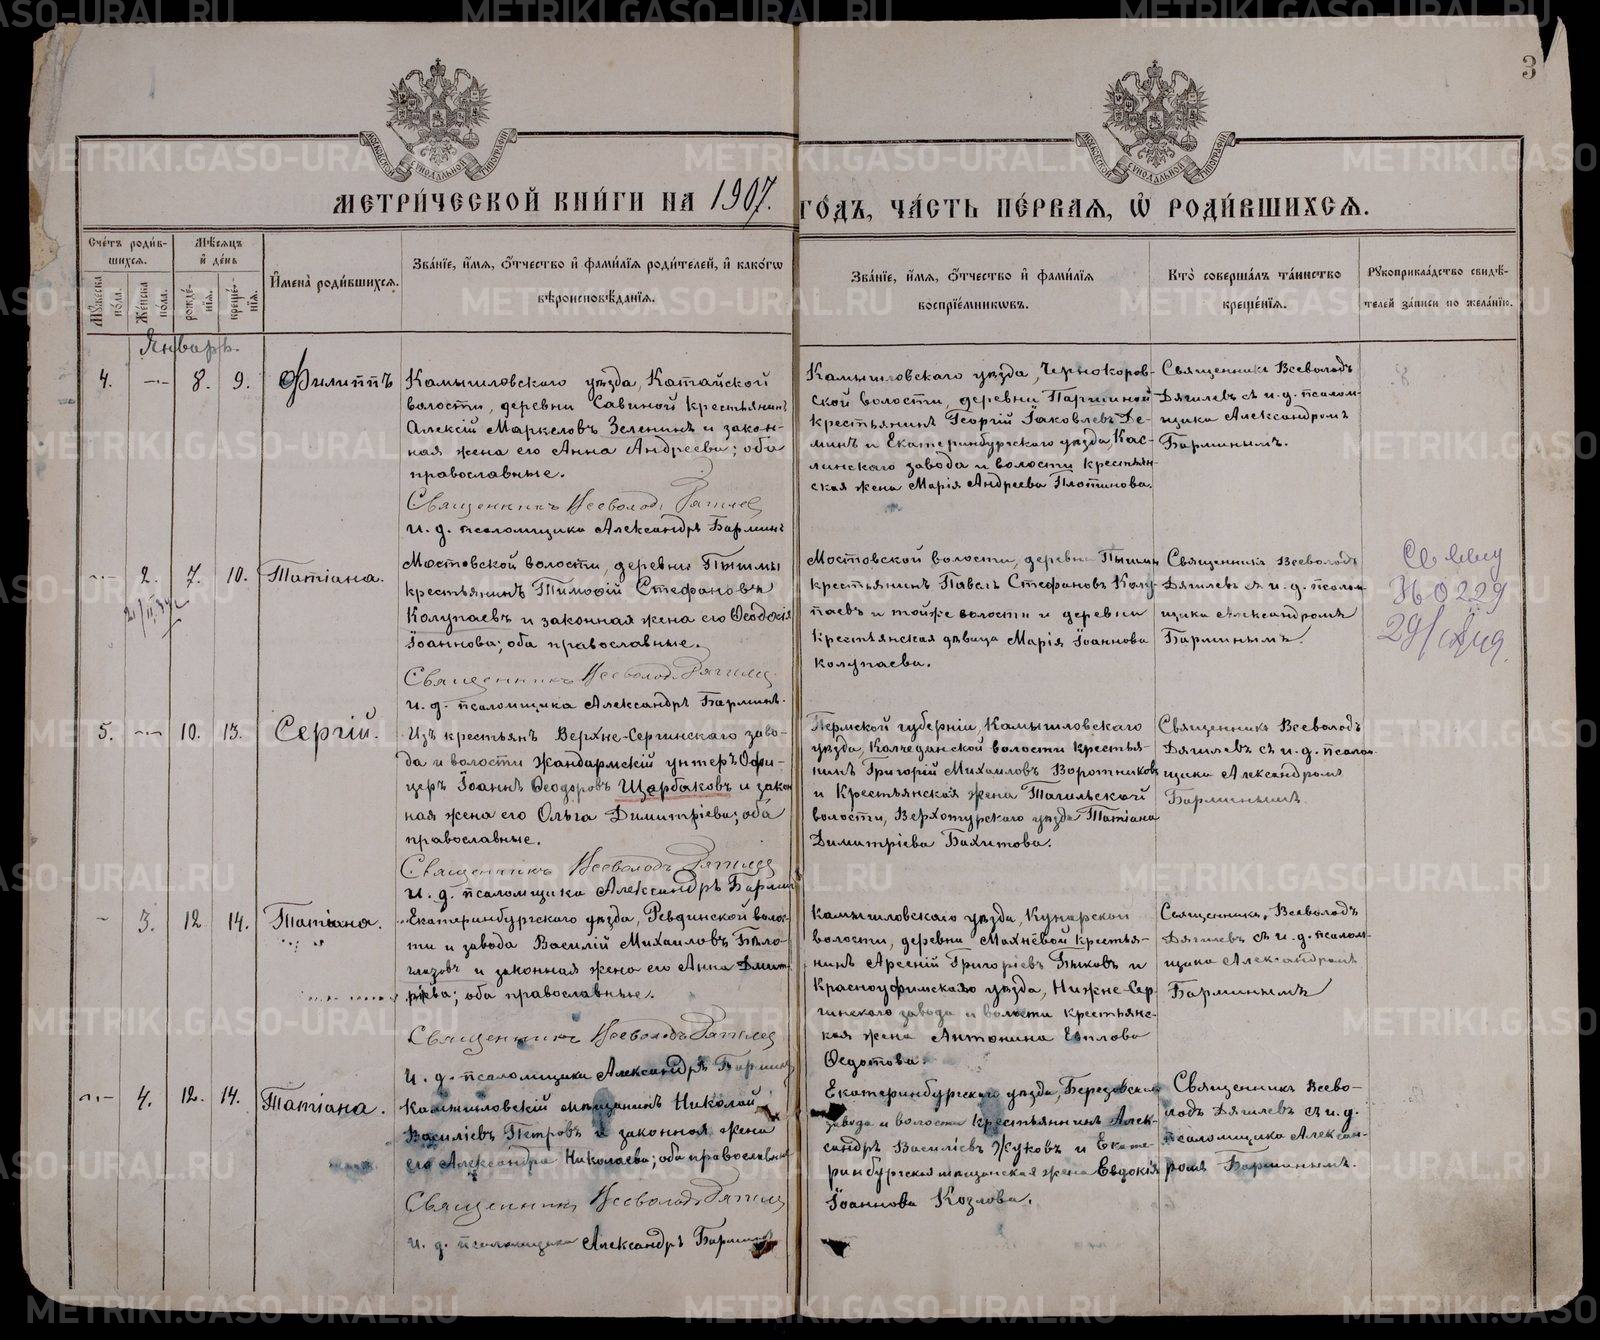 3
МЕТРИ́ЧЕСКОЙ КНИ́ГИ НА 1907. ГО́ДЪ, ЧА́СТЬ ПЕ́РВАЯ, Ѡ҆ РОДИ́ВШИХСѦ.
Сче́тъ роди́в-
шихсѧ.
Мꙋ́жеска по́ла.
Же́нска по́ла.
Мѣ́сѧцъ
и҆ де́нь
рожде́-
нїѧ.
креще́-
нїѧ.
И҆мена̀ роди́вшихсѧ.
Зва́нїе, и҆́мѧ, ѻ҆́тчество и҆ фами́лїѧ роди́телей, и҆ како́гѡ
вѣроисповѣ́данїѧ.
Зва́нїе, и҆́мѧ, ѻ҆́тчество и҆ фами́лїѧ
воспрїе́мникѡвъ.
Кто̀ соверша́лъ та́инство
креще́нїѧ.
Рꙋкоприкла́дство свидѣ́-
телей за́писи по жела́нїю.
Январь.
4. — 8. 9. Филиппъ
Камышловскаго уѣзда, Катайской
волости, деревни Савиной крестьянинъ
Алексій Маркеловъ Зеленинъ и закон-
ная жена его Анна Андреева; оба
православные.
Священникъ Всеволодъ Дягилев
И. д. псаломщика Александръ Барминъ
Камышловскаго уѣзда, Чернокоров-
ской волости, деревни Паршиной
крестьянинъ Георгій Іаковлевъ Де-
минъ и Екатеринбургскаго уѣзда, Кас-
линскаго завода и волости крестьян-
ская жена Марія Андреева Плотникова.
Священникъ Всеволодъ
Дягилевъ съ и. д. псалом-
щика Александромъ
Барминымъ.
— 2. 7. 10. Татіана.
Мостовской волости, деревни Пышмы
крестьянинъ Тимоѳій Стефановъ
Колупаевъ и законная жена его Ѳеодосія
Іоаннова; оба православные.
Священникъ Всеволодъ Дягилев
И. д. псаломщика Александръ Барминъ.
Мостовской волости, деревни Пышмы
крестьянинъ Павелъ Стефановъ Колу-
паевъ и тойже волости и деревни
крестьянская дѣвица Марія Іоаннова
Колупаева.
Священникъ Всеволодъ
Дягилевъ съ и. д. псалом-
щика Александромъ
Барминымъ.
№ 0229
5. — 10. 13. Сергій.
Изъ крестьянъ Верхне-Сергинскаго заво-
да и волости жандармскій унтеръ Офи-
церъ Іоаннъ Ѳеодоровъ Щербаковъ и закон
ная жена его Ольга Димитріева; оба
православные.
Священникъ Всеволодъ Дягилев
И. д. псаломщика Александръ Бармин
Пермской губерніи, Камышловскаго
уѣзда, Колчеданской волости крестья-
нинъ Григорій Михаиловъ Воротниковъ
и Крестьянская жена Тагильской
волости, Верхотурскаго уѣзда Татіана
Димитріева Бахитова.
Священникъ Всеволодъ
Дягилевъ съ и. д. псалом-
щика Александромъ
Барминымъ
— 3. 12 14. Татіана.
Екатеринбургскаго уѣзда, Ревдинской волос-
ти и завода Василій Михаиловъ Бѣло-
глазовъ и законная жена его Анна Дмит-
ріева; оба православные.
Священникъ Всеволодъ Дягилев
И. д. псаломщика Александръ Барминъ
Камышловскаго уѣзда, Кунарской
волости, деревни Махнёвой крестья-
нинъ Арсеній Григоріевъ Быковъ и
Красноуфимскаго уѣзда, Нижне-Сер-
гинскаго завода и волости крестьянс-
кая жена Антонина Евплова
Ѳедотова.
Священникъ Всеволодъ
Дягилевъ съ и. д. псалом-
щика Александромъ
Барминымъ
— 4. 12. 14. Татіана.
Камышловскій мѣщанинъ Николай
Василіевъ Петровъ и законная жена
его Александра Николаева; оба православные
Священникъ Всеволодъ Дягилев
И. д. псаломщика Александръ Барминъ
Екатеринбургскаго уѣзда, Березовскаго
завода и волости крестьянинъ Алек-
сандръ Василіевъ Жуковъ и Екате-
ринбургская мѣщанская жена Евдокія
Іоаннова Козлова.
Священникъ Всево-
лодъ Дягилевъ съ и. д.
псаломщика Алексан-
ромъ Барминымъ.
METRIKI.GASO-URAL.RU